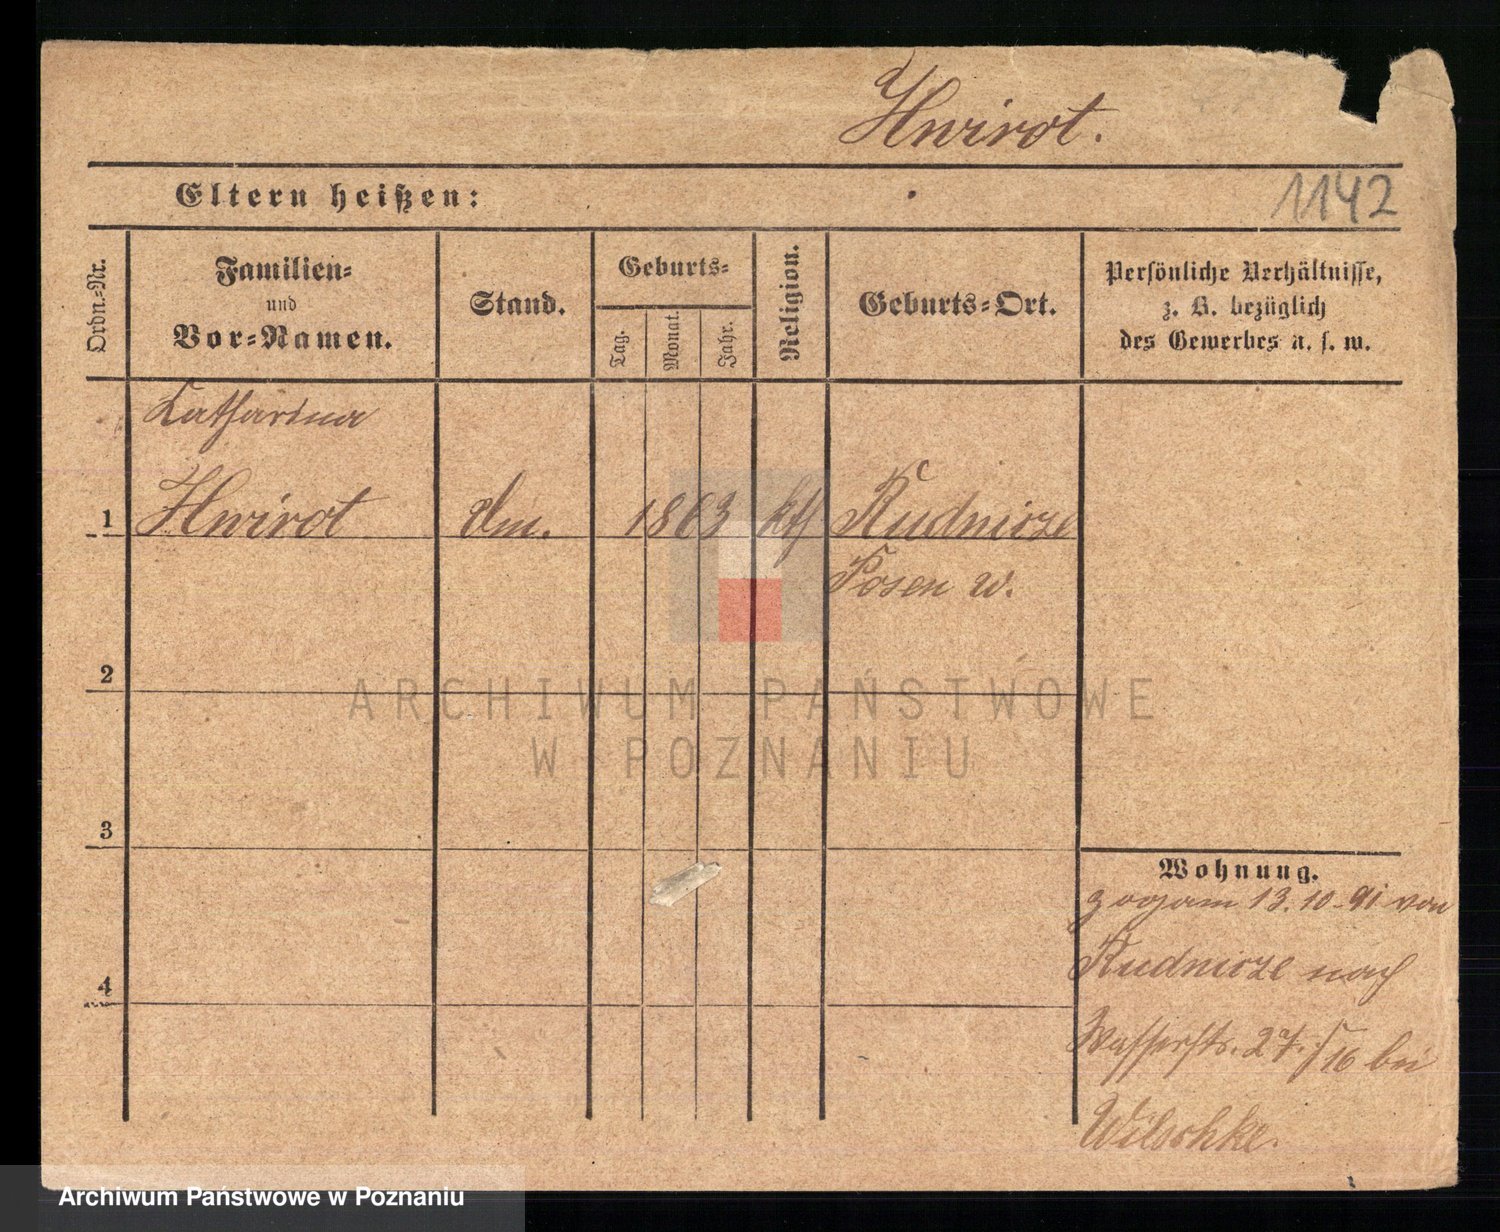 Hwirot.
Eltern heißen:
1142
Ordn.-Nr.
Familien-
und
Vor-Namen.
Stand.
Geburts-
Tag.
Monat.
Jahr.
Religion.
Geburts-Ort.
Persönliche Verhältnisse,
z. B. bezüglich
des Gewerbes u. s. w.
Catharina
1 Hwirot dm. 1863 kth Rudnicze
Posen W.
2
ARCHIWUM PAŃSTWOWE
W POZNANIU
3
Wohnung.
zog am 13.10.91 von
Rudnicze nach
4
Wasserstr. 27. bei
Wilschke.
Archiwum Państwowe w Poznaniu